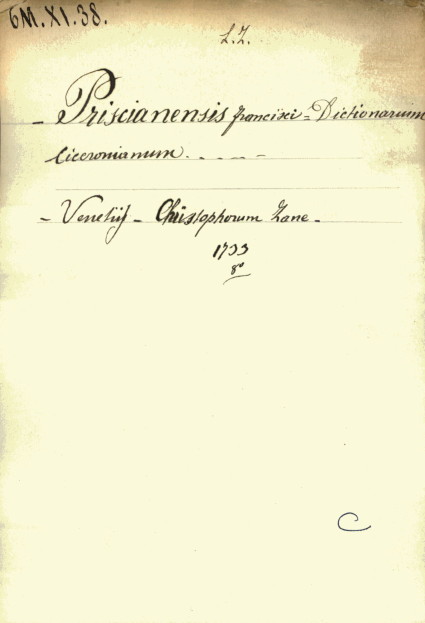 6M.XI.38.
L.Z.
- Priscianensis francisci = Dictionarium
Ciceronianum. - - - -
- Venetijs - Christophorum Zane -
1733
8º
C